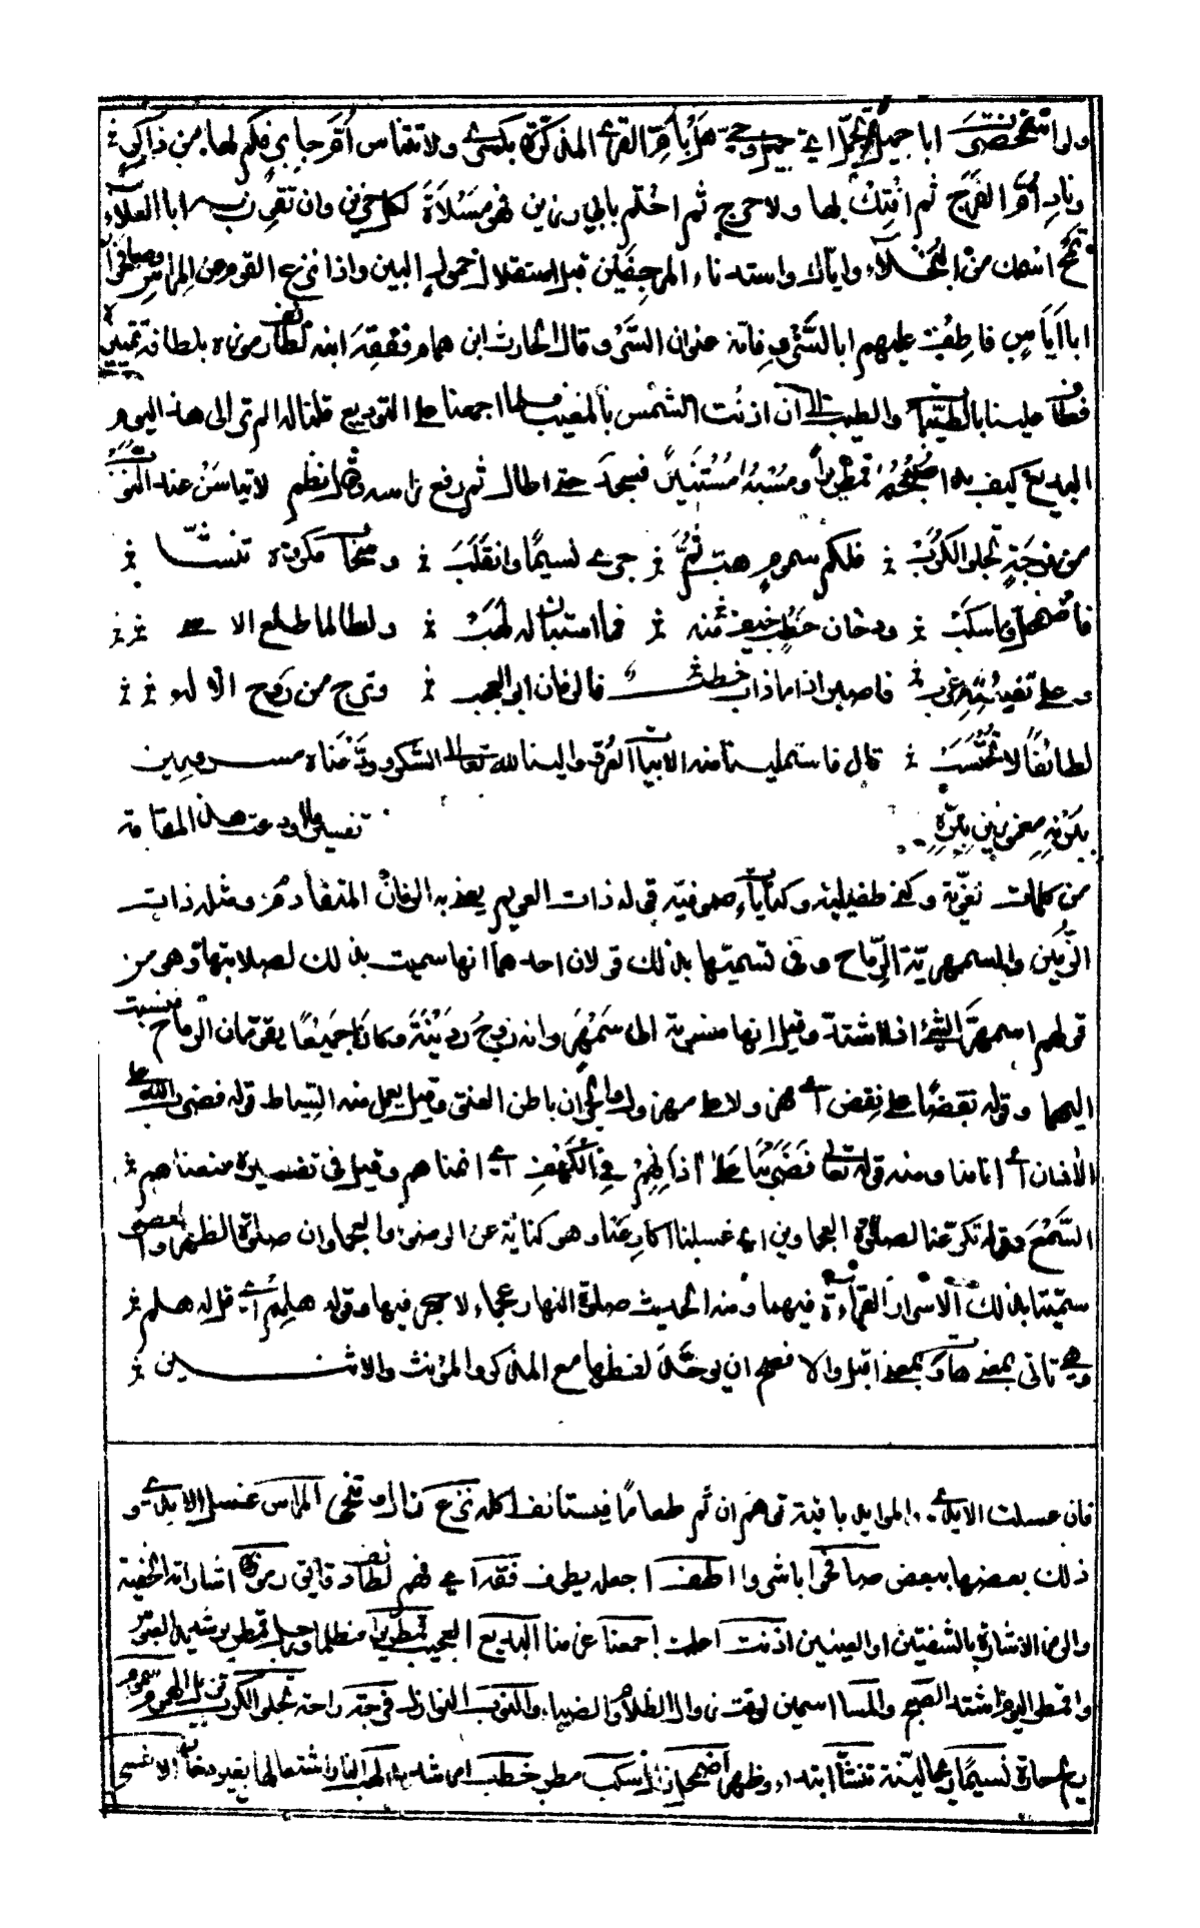 ولو استحضرت ابا جميل لجمل اي تجميل وحي هل بام القرى المذكرة بكسرى ولا تتناس ام جابر فكم لها من ذاكر
وناد ام الفرج ثم افتك بها ولا حرج ثم اختم بابي رزين فهو مسلاة لكل حزين وان تقرن به ابا العلاء
تمح اسمك من البخلاء واياك واستدناء المرجفين قبل استقلال حمول البين واذا نزع القوم عن المراس وصافحوا
ابا اياس فاطف عليهم ابا السرو فانه عنوان السرو وقال الحارث ابن همام ففقه ابنه لطائف رموزه بلطافة تمييزه
فطاف علينا بالطيبات والطيب الى ان اذنت الشمس بالمغيب فلما اجمعنا على التوديع قلنا له الم تر الى هذا اليوم
البديع كيف بدا صبحه قمطريرا ومسيه مستنيرا فسجد حتى اطال ثم رفع راسه وقال نظم لا تياسن عند النوب
من فرجة تجلو الكرب فلكم سموم هب ثم جرى نسيما وانقلب وسحاب مكروه تنشا
فاضمحل وما سكب ودخان خطب خيف منه فما استبان له لهب ولطالما طلع الاسى
وعلى تفيئته غرب فاصبر اذا ما ناب خطب فالزمان ابو العجب وترج من روح الاله
لطائفا لا تحتسب قال فاستملينا منه الابيات الغر ووالينا لله تعالى الشكر وودعناه مسرورين
ببرئه مغمورين ببره تفسير ما اودعت هذه المقامة
من كلمات لغوية وكنى طفيلية وكنايات صوفية قوله ذات العويم يعني به الزمان المتقادم ومثله ذات
الزمين والسمهرية الرماح وفي تسميتها بذلك قولان احدهما انها سميت بذلك لصلابتها وهو من
قولهم اسمهر الشيء اذا اشتد وقيل انها منسوبة الى سمهر وانه زوج ردينة وكانا جميعا يقومان الرماح فنسبت
اليهما وقوله نقضا على نقض اي هزولا على مهزول والجران باطن العنق وقيل يعمل منه السياط قوله فضرب الله على
الاذان اي انامنا ومنه قوله تعالى فضربنا على اذانهم في الكهف اي انمناهم وقيل في تفسيره منعناهم
السمع وقوله تكرعنا لصلوة العجماوين اي غسلنا اكارعنا وهو كناية عن الوضوء والعجماوان صلوة الظهر والعصر
سميتا بذلك لاسرار القراءة فيهما ومنه الحديث صلوة النهار عجماء لا جهر فيها وقوله هلمم اي قل له هلم
وهي تاتي بمعنى هات وبمعنى اقبل والافصح ان يوحد لفظها مع المذكر والمؤنث والاثنين
فان غسلت الايدي والموائد باقية توهم ان ثم طعاما فيستانف اكله نزع زال وتنحى المراس غسل الايدي و
ذلك بعضها ببعض صافحوا باشروا اطف اجعله يطوف ففقه اي فهم لطائف دقائق رموزه اشاراته الخفية
والرمز الاشارة بالشفتين او العينين اذنت اعلمت اجمعنا عزمنا البديع العجيب قمطريرا مظلما ورجل قمطرير شديد العبوس
واقمطر اليوم اشتد الصبح والمسا اسمين لوقت زوال الظلام والضياء والنوب النوازل فرجة راحة تجلو الكرب تزيل الهموم سموم
ريح حارة نسيما ريحا لينة تنشا ابتدا وظهر اضمحل زال سكب مطر خطب امر شديد لهب النار اشتعالها بغير دخان الاسى